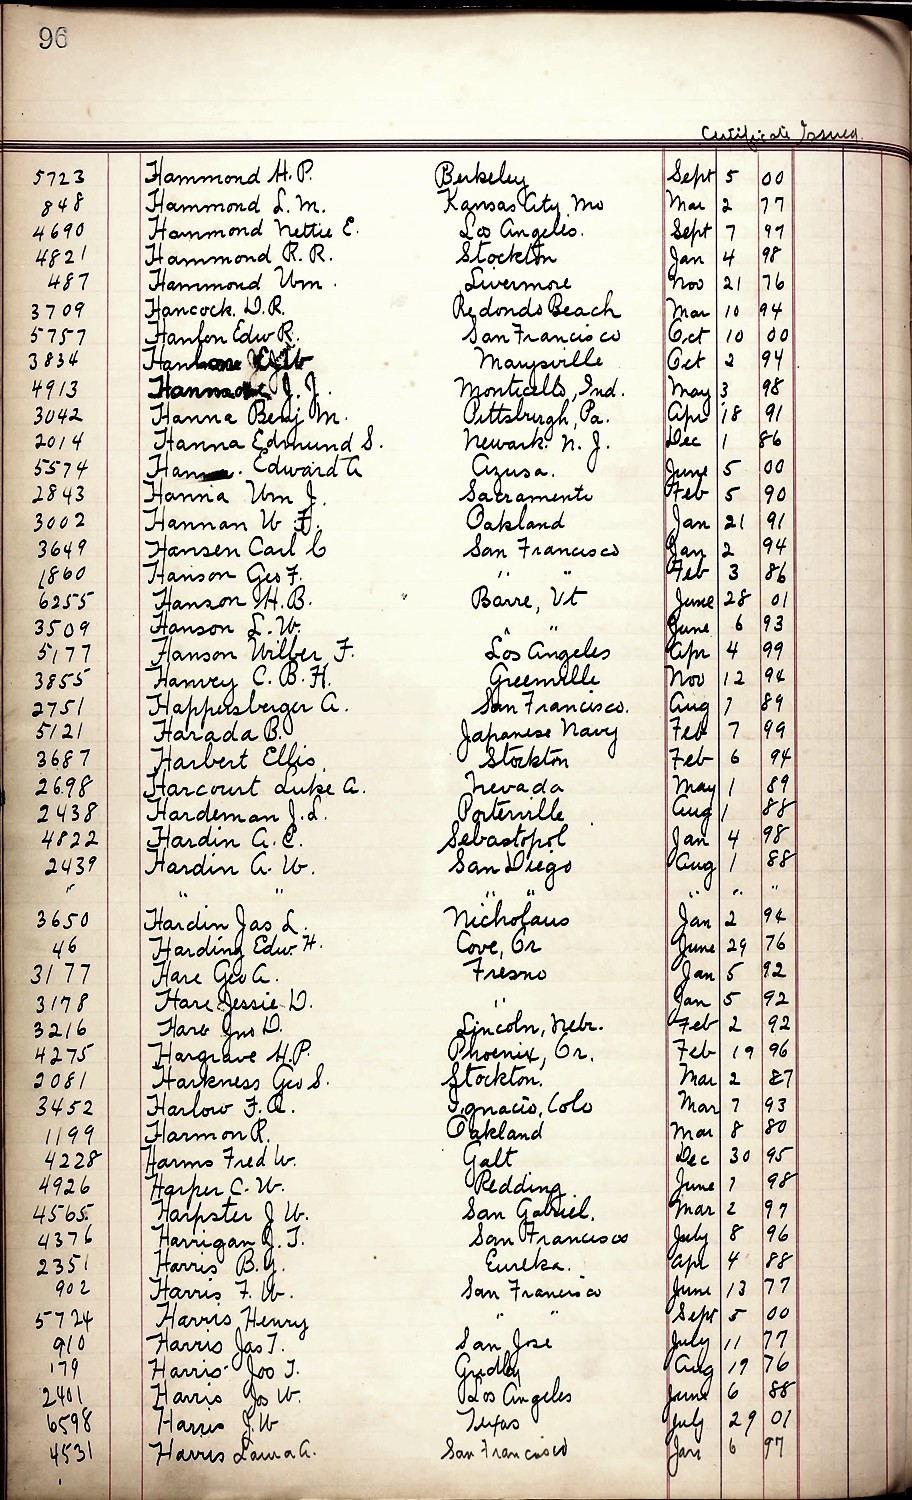 96
Certificate Issued.
5723 Hammond H. P. Berkeley Sept 5 00
848 Hammond L. M. Kansas City Mo Mar 2 77
4690 Hammond Nettie E. Los Angeles. Sept 7 97
4821 Hammond R. R. Stockton Jan 4 98
487 Hammond Wm. Livermore Nov 21 76
3709 Hancock. D. R. Redondo Beach Mar 10 94
5757 Hanlon Edw R. San Francisco Oct 10 00
3834 Marysville Oct 2 94
4913 J. J. Monticello, Ind. May 3 98
3042 Hanna Benj M. Pittsburgh, Pa. Apr 18 91
2014 Hanna Edmund S. Newark. N. J. Dec 1 86
5574 Edward A Azusa. June 5 00
2843 Hanna Wm J. Sacramento Feb 5 90
3002 Hannan W F. Oakland Jan 21 91
3649 Hansen Carl C San Francisco Jan 2 94
1860 Hanson Geo F. " " Feb 3 86
6255 Hanson H. B. Barre, Vt June 28 01
3509 Hanson L. W. " " June 6 93
5177 Hanson Wilber F. Los Angeles Apr 4 99
3855 Hanvey C. B. H. Greenville Nov 12 94
2751 Happersberger A. San Francisco. Aug 7 89
5121 Harada B. Japanese Navy Feb 7 99
3687 Harbert Ellis. Stockton Feb 6 94
2698 Harcourt Luke A. Nevada May 1 89
2438 Hardeman J. L. Porterville Aug 1 88
4822 Hardin A. E. Sebastopol Jan 4 98
2439 Hardin A. W. San Diego Aug 1 88
" " " " " " " "
3650 Hardin Jas L. Nicholaus Jan 2 94
46 Harding Edw. H. Cove, Or June 29 76
3177 Hare Geo A. Fresno Jan 5 92
3178 Hare Jessie D. " Jan 5 92
3216 Hare Jno D. Lincoln, Nebr. Feb 2 92
4275 Hargrave H. P. Phoenix, Or. Feb 19 96
2081 Harkness Geo S. Stockton. Mar 2 87
3452 Harlow F. A. Ignacio, Colo Mar 7 93
1199 Harmon R. Oakland Mar 8 80
4228 Harms Fred W. Galt Dec 30 95
4926 Harper C. W. Redding June 7 98
4565 Harpster J W. San Gabriel. Mar 2 97
4376 Harrigan J. T. San Francisco July 8 96
2351 Harris B. Y. Eureka. Apr 4 88
902 Harris F. W. San Francisco June 13 77
5724 Harris Henry " " Sept 5 00
910 Harris Jas T. San Jose July 11 77
179 Harris Jos T. Gridley Aug 19 76
2401 Harris Jos W. Los Angeles June 6 88
6598 Harris J. W Texas July 29 01
4531 Harris Laura A. San Francisco Jan 6 97